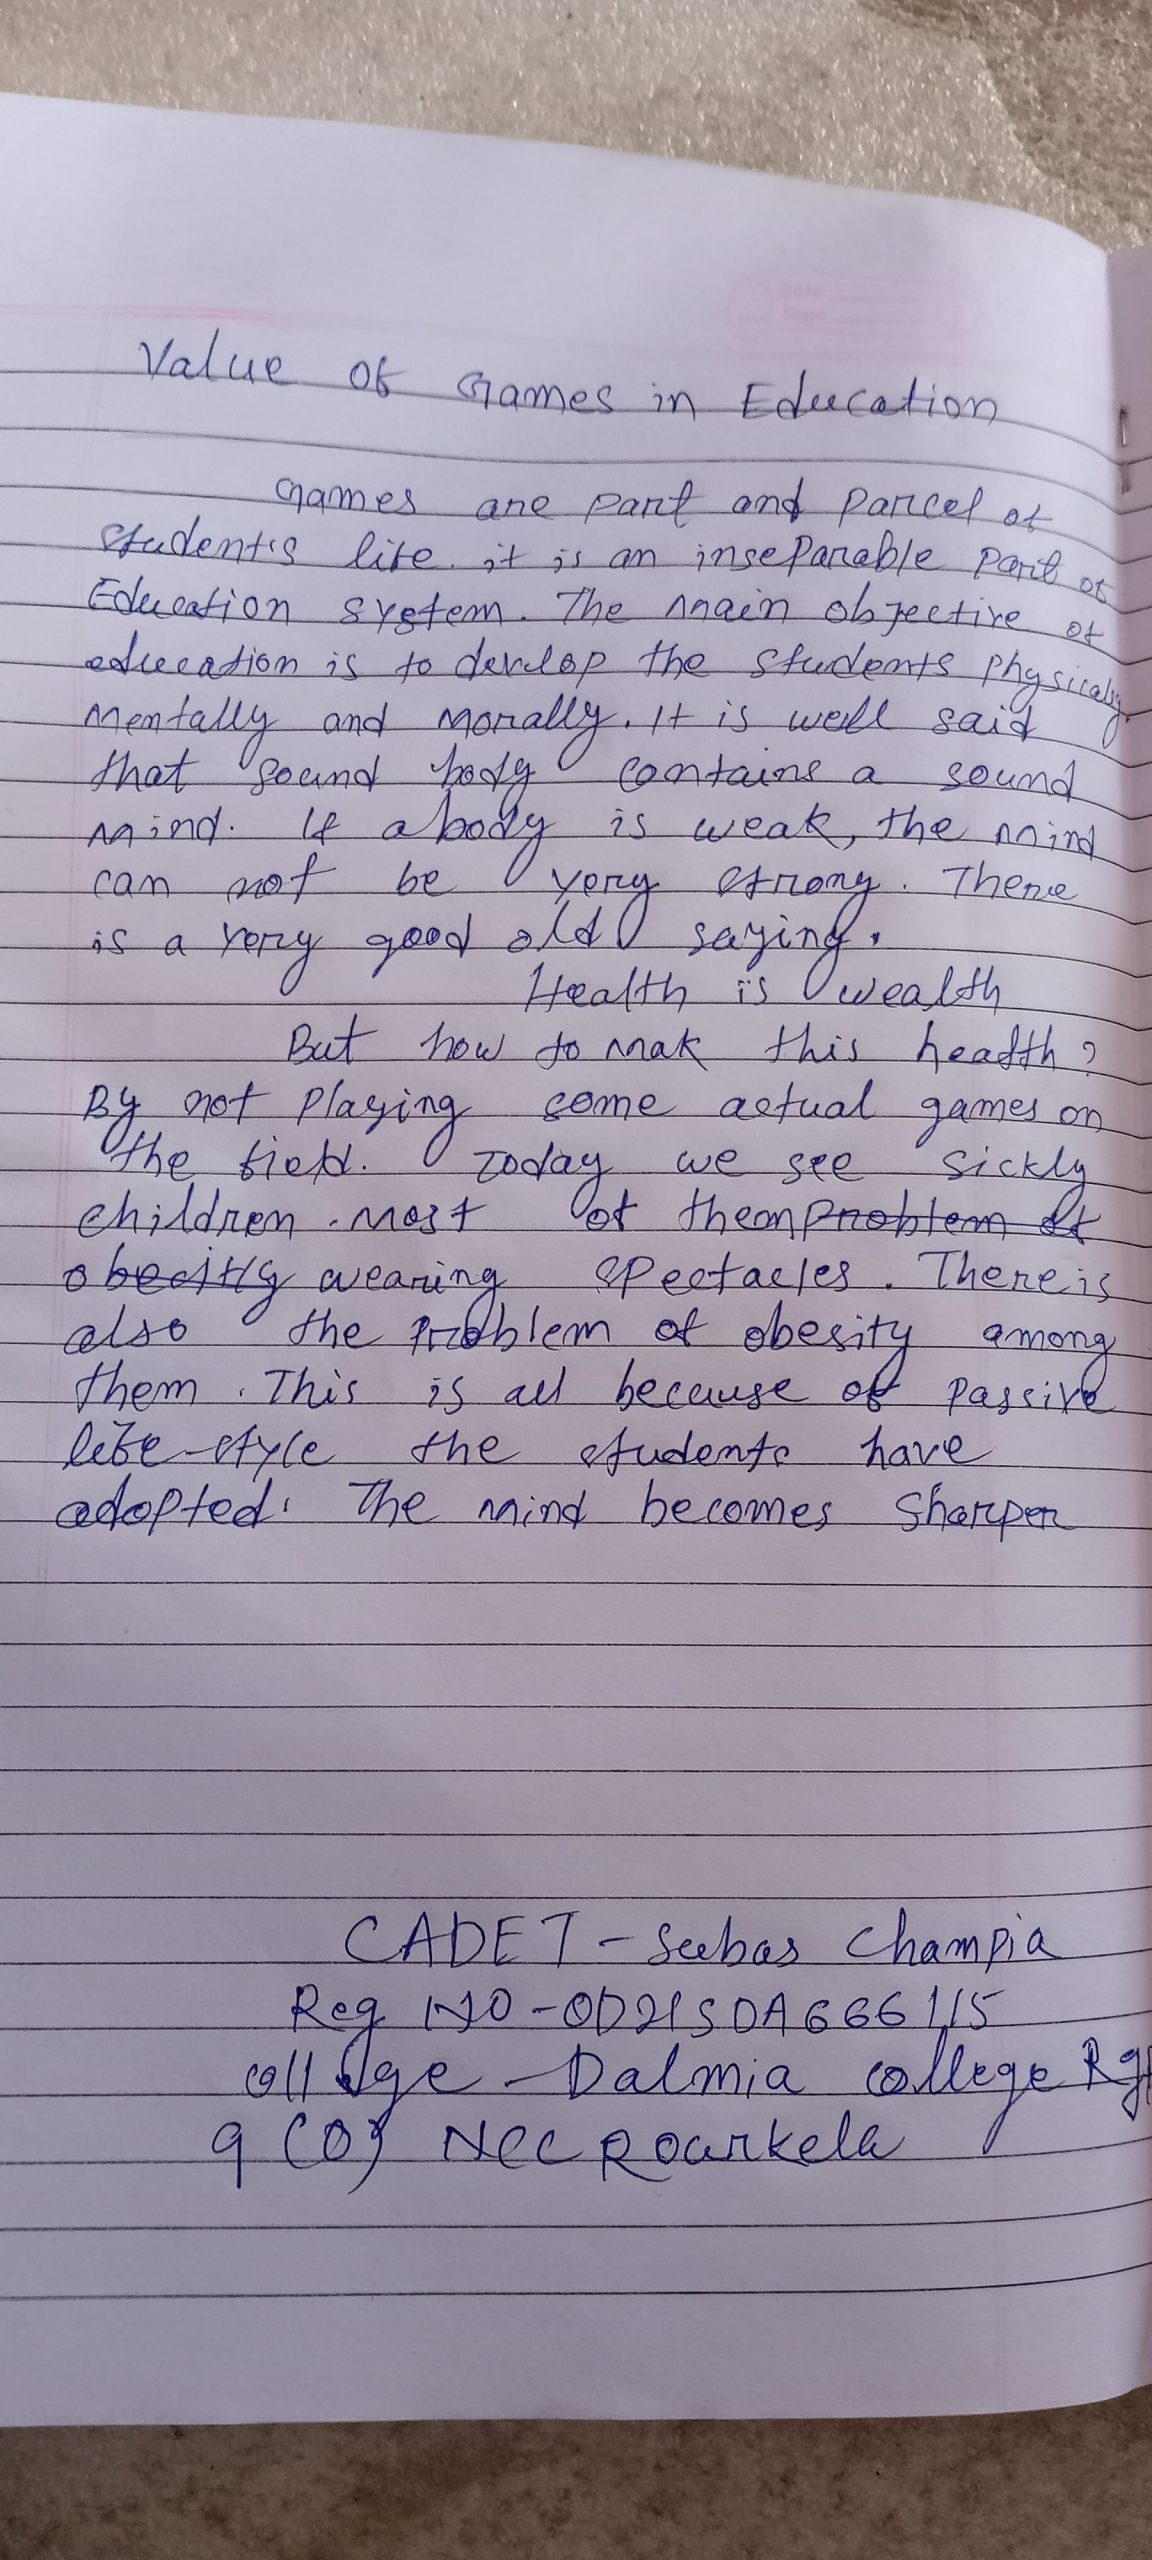 Value of Games in Education
Games are part and parcel of
student's life. it is an inseparable part of
Education system. The main objective of
education is to develop the students physically
mentally and morally. It is well said
that sound body contains a sound
mind. If a body is weak, the mind
can not be very strong. There
is a very good old saying.
Health is wealth
But how to mak this health?
By not playing some actual games on
the field. Today we see sickly
children. most of them problem of
obecitly wearing spectacles. There is
also the problem of obesity among
them. This is all because of passive
life-style the students have
adopted. The mind becomes sharper
CADET - Subas Champia
Reg NO - OD21SDA666115
college - Dalmia college Rgp
9 (O) NCC Rourkela